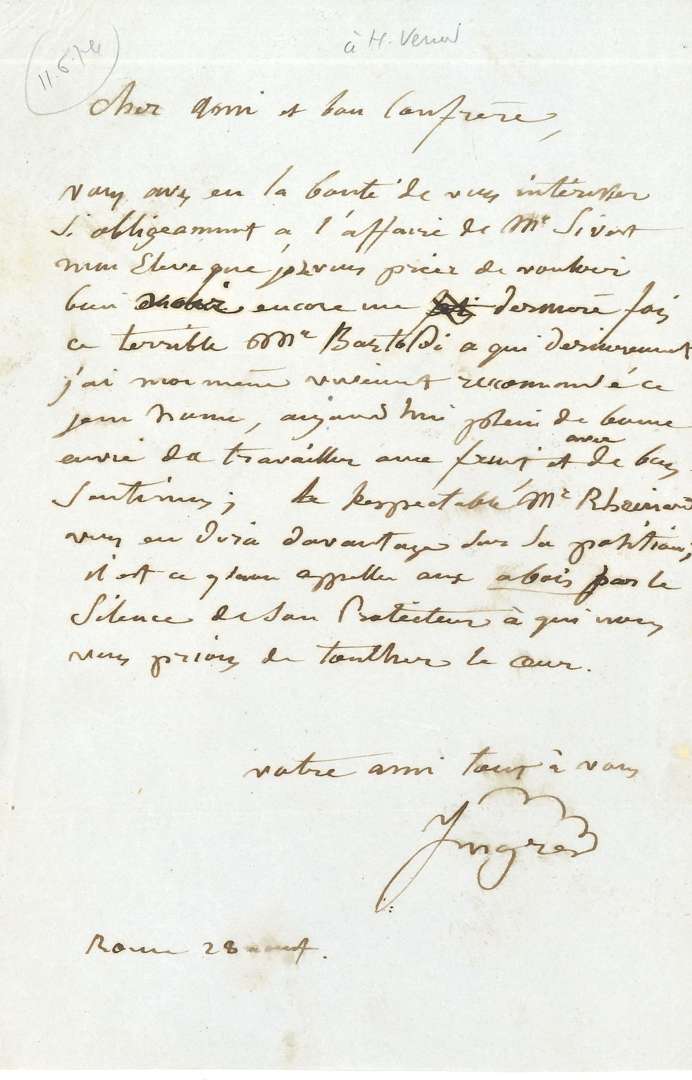 11.6.74
à H. Vernet
Cher Ami et bon Confrère,
vous avez eu la bonté de vous intéresser
si obligeamment a l'affaire de Mr
mon Eleve que j'ose vous prier de vouloir
bien encore une dernière fois
ce terrible Mr Bartoldi a qui dernierement
j'ai moi même vivement recommandé ce
jeune homme, aujourd'hui plein de bonne
envie de travailler avec fruit et avec de bons
Sentimens; Le Respectable Mr
vous en dira davantage sur sa position;
il est ce qu'on appelle aux abois par le
Silence de son Protecteur à qui nous
vous prions de toucher le cœur.
votre ami tout à vous
Ingres
Rome 28 aout.